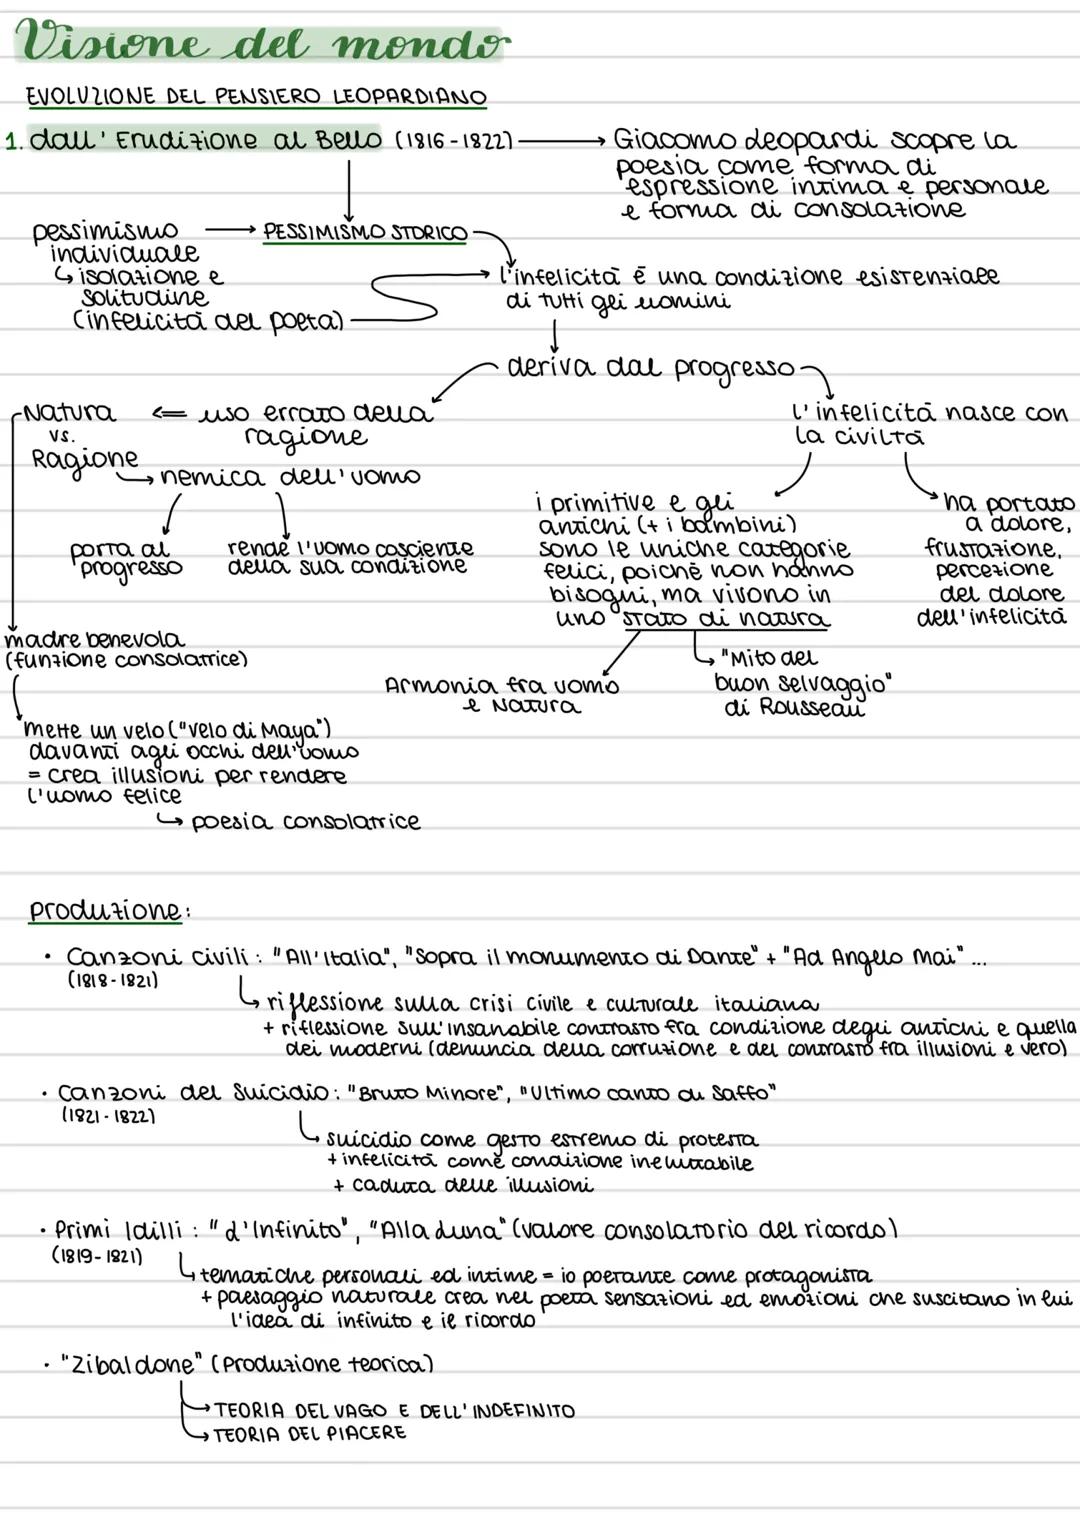 Visione del mondo
EVOLUZIONE DEL PENSIERO LEOPARDIANO
1. dall'Erudizione al Bello (1816-1822) → Giacomo Leopardi scopre la
poesia come forma di
espressione intima e personale
e forma di consolazione
pessimismo → PESSIMISMO STORICO
individuale
↳ isolazione e
solitudine
(infelicità del poeta)
l'infelicità è una condizione esistenziale
di tutti gli uomini
deriva dal progresso
Natura ⇐ uso errato della
vs. ragione
Ragione
↳ nemica dell'uomo
porta al
progresso
rende l'uomo cosciente
della sua condizione
l'infelicità nasce con
la civiltà
i primitive e gli
antichi (+ i bambini)
sono le uniche categorie
felici, poiché non hanno
bisogni, ma vivono in
uno stato di natura
ha portato
a dolore,
frustazione,
percezione
del dolore
dell'infelicità
madre benevola
(funzione consolatrice)
Armonia fra uomo
e Natura
↳ "Mito del
buon selvaggio"
di Rousseau
mette un velo ("velo di Maya")
davanti agli occhi dell'uomo
= crea illusioni per rendere
l'uomo felice
↳ poesia consolatrice
produzione:
• Canzoni civili: "All'Italia", "Sopra il monumento di Dante" + "Ad Angelo Mai"...
(1818-1821)
↳ riflessione sulla crisi civile e culturale italiana
+ riflessione sull'insanabile contrasto fra condizione degli antichi e quella
dei moderni (denuncia della corruzione e del contrasto fra illusioni e vero)
• Canzoni del Suicidio: "Bruto Minore", "Ultimo canto di Saffo"
(1821-1822)
↳ suicidio come gesto estremo di protesta
+ infelicità come condizione ineluttabile
+ caduta delle illusioni
• Primi Idilli: "L'Infinito", "Alla Luna" (valore consolatorio del ricordo)
(1819-1821)
↳ tematiche personali ed intime = io poetante come protagonista
+ paesaggio naturale crea nel poeta sensazioni ed emozioni che suscitano in lui
l'idea di infinito e il ricordo
• "Zibaldone" (Produzione teorica)
→ TEORIA DEL VAGO E DELL'INDEFINITO
→ TEORIA DEL PIACERE